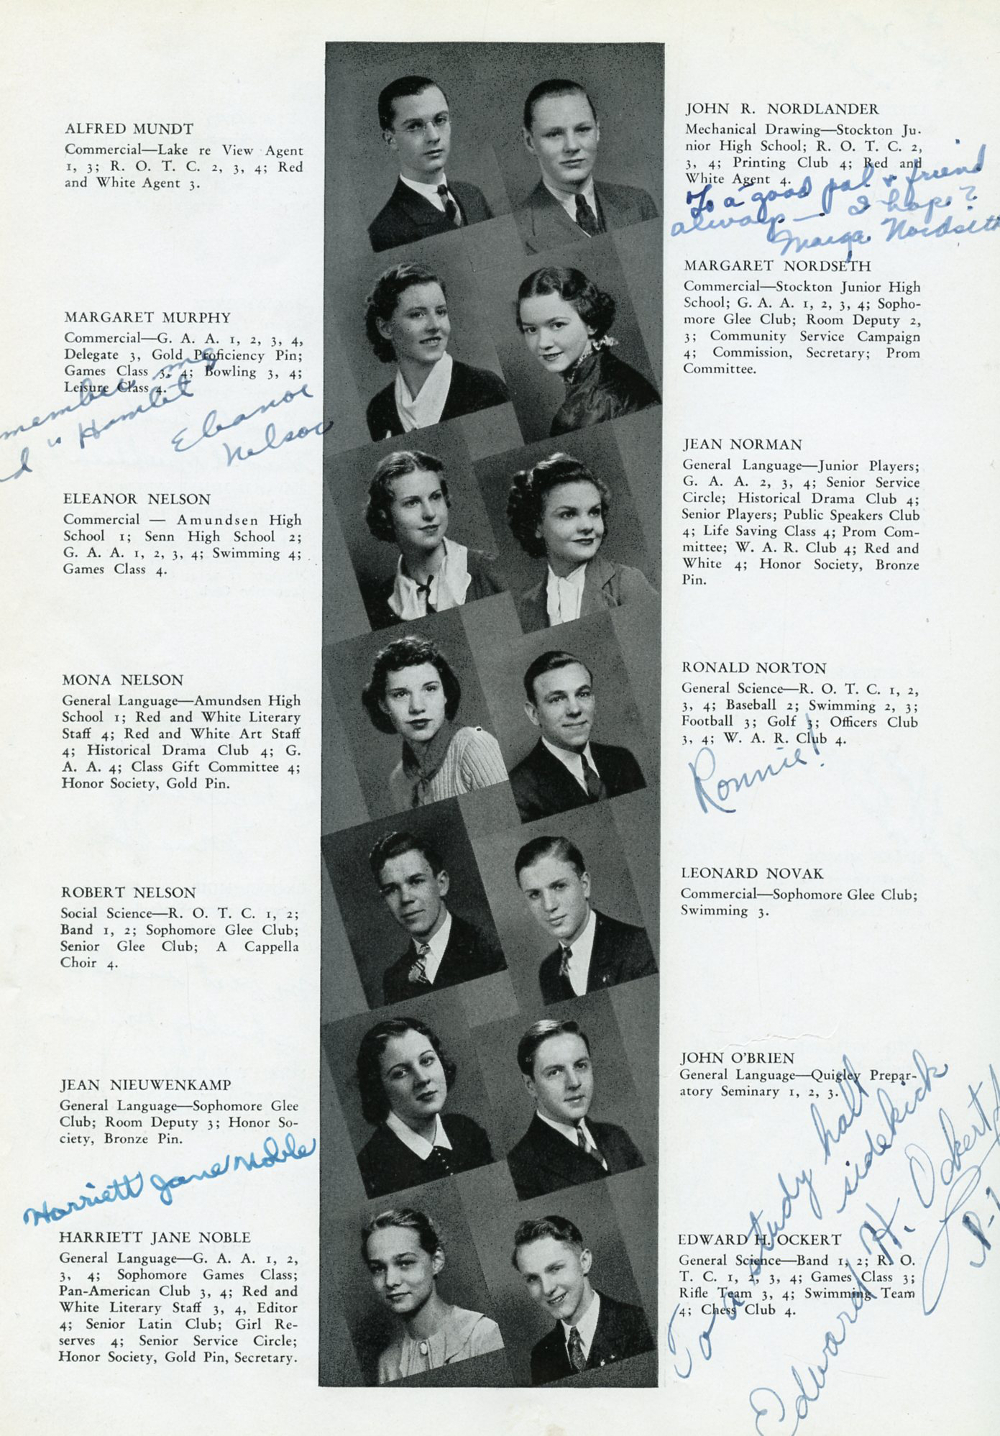 ALFRED MUNDT
Commercial—Lake re View Agent
1, 3; R. O. T. C. 2, 3, 4; Red
and White Agent 3.
MARGARET MURPHY
Commercial—G. A. A. 1, 2, 3, 4,
Delegate 3, Gold Proficiency Pin;
Games Class 3, 4; Bowling 3, 4;
Leisure Class 4.
member me
Hamlet
Eleanor
Nelson
ELEANOR NELSON
Commercial — Amundsen High
School 1; Senn High School 2;
G. A. A. 1, 2, 3, 4; Swimming 4;
Games Class 4.
MONA NELSON
General Language—Amundsen High
School 1; Red and White Literary
Staff 4; Red and White Art Staff
4; Historical Drama Club 4; G.
A. A. 4; Class Gift Committee 4;
Honor Society, Gold Pin.
ROBERT NELSON
Social Science—R. O. T. C. 1, 2;
Band 1, 2; Sophomore Glee Club;
Senior Glee Club; A Cappella
Choir 4.
JEAN NIEUWENKAMP
General Language—Sophomore Glee
Club; Room Deputy 3; Honor So-
ciety, Bronze Pin.
Harriett Jane Noble
HARRIETT JANE NOBLE
General Language—G. A. A. 1, 2,
3, 4; Sophomore Games Class;
Pan-American Club 3, 4; Red and
White Literary Staff 3, 4, Editor
4; Senior Latin Club; Girl Re-
serves 4; Senior Service Circle;
Honor Society, Gold Pin, Secretary.
JOHN R. NORDLANDER
Mechanical Drawing—Stockton Ju-
nior High School; R. O. T. C. 2,
3, 4; Printing Club 4; Red and
White Agent 4.
To a good pal & friend
always — I hope?
Marga Nordseth
MARGARET NORDSETH
Commercial—Stockton Junior High
School; G. A. A. 1, 2, 3, 4; Sopho-
more Glee Club; Room Deputy 2,
3; Community Service Campaign
4; Commission, Secretary; Prom
Committee.
JEAN NORMAN
General Language—Junior Players;
G. A. A. 2, 3, 4; Senior Service
Circle; Historical Drama Club 4;
Senior Players; Public Speakers Club
4; Life Saving Class 4; Prom Com-
mittee; W. A. R. Club 4; Red and
White 4; Honor Society, Bronze
Pin.
RONALD NORTON
General Science—R. O. T. C. 1, 2,
3, 4; Baseball 2; Swimming 2, 3;
Football 3; Golf 3; Officers Club
3, 4; W. A. R. Club 4.
Ronnie!
LEONARD NOVAK
Commercial—Sophomore Glee Club;
Swimming 3.
JOHN O'BRIEN
General Language—Quigley Prepar-
atory Seminary 1, 2, 3.
To a study hall
sidekick
Edward H. Ockert
EDWARD H. OCKERT
General Science—Band 1, 2; R. O.
T. C. 1, 2, 3, 4; Games Class 3;
Rifle Team 3, 4; Swimming Team
4; Chess Club 4.